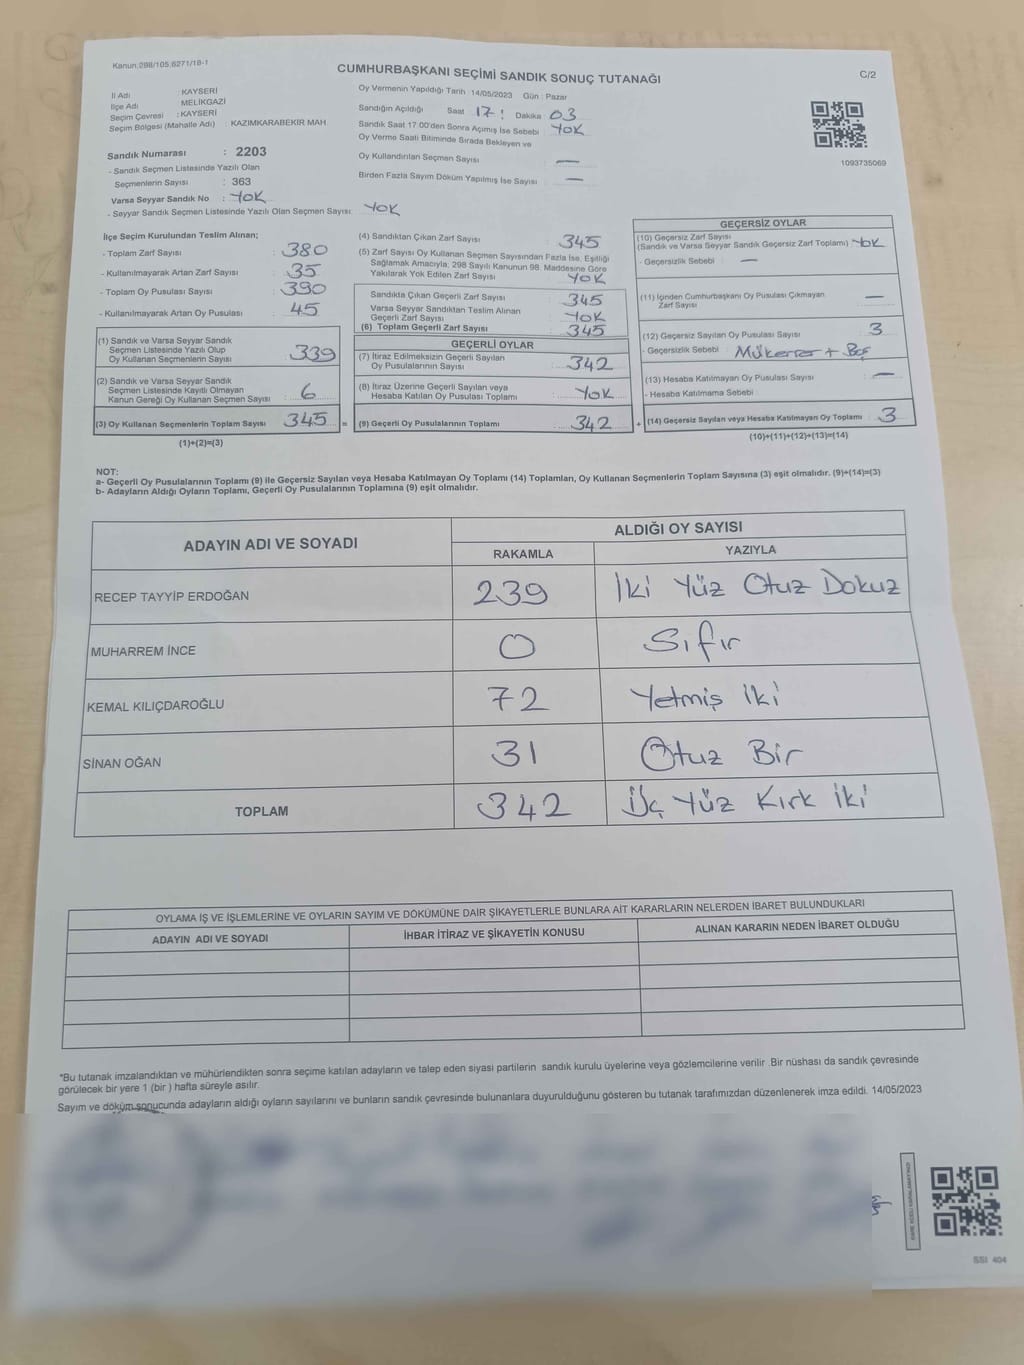 Kanun,298/105,6271/18-1
CUMHURBAŞKANI SEÇİMİ SANDIK SONUÇ TUTANAĞI
C/2
İl Adı : KAYSERİ
İlçe Adı MELİKGAZİ
Seçim Çevresi : KAYSERİ
Seçim Bölgesi (Mahalle Adı) : KAZIMKARABEKIR MAH
Sandık Numarası : 2203
- Sandık Seçmen Listesinde Yazılı Olan
Seçmenlerin Sayısı : 363
Varsa Seyyar Sandık No : YOK
- Seyyar Sandık Seçmen Listesinde Yazılı Olan Seçmen Sayısı: YOK
Oy Vermenin Yapıldığı Tarih 14/05/2023 Gün : Pazar
Sandığın Açıldığı Saat 17 : Dakika 03
Sandık Saat 17:00'den Sonra Açımış İse Sebebi : YOK
Oy Verme Saati Bitiminde Sırada Bekleyen ve
Oy Kullandırılan Seçmen Sayısı : —
Birden Fazla Sayım Döküm Yapılmış İse Sayısı : —
1093735069
İlçe Seçim Kurulundan Teslim Alınan;
- Toplam Zarf Sayısı : 380
- Kullanılmayarak Artan Zarf Sayısı : 35
- Toplam Oy Pusulası Sayısı : 390
- Kullanılmayarak Artan Oy Pusulası : 45
(1) Sandık ve Varsa Seyyar Sandık
Seçmen Listesinde Yazılı Olup
Oy Kullanan Seçmenlerin Sayısı : 339
(2) Sandık ve Varsa Seyyar Sandık
Seçmen Listesinde Kayıtlı Olmayan
Kanun Gereği Oy Kullanan Seçmen Sayısı : 6
(3) Oy Kullanan Seçmenlerin Toplam Sayısı : 345 =
(1)+(2)=(3)
(4) Sandıktan Çıkan Zarf Sayısı : 345
(5) Zarf Sayısı Oy Kullanan Seçmen Sayısından Fazla İse, Eşitliği
Sağlamak Amacıyla; 298 Sayılı Kanunun 98. Maddesine Göre
Yakılarak Yok Edilen Zarf Sayısı : YOK
Sandıkta Çıkan Geçerli Zarf Sayısı : 345
Varsa Seyyar Sandıktan Teslim Alınan
Geçerli Zarf Sayısı : YOK
(6) Toplam Geçerli Zarf Sayısı : 345
GEÇERLİ OYLAR
(7) İtiraz Edilmeksizin Geçerli Sayılan
Oy Pusulalarının Sayısı : 342
(8) İtiraz Üzerine Geçerli Sayılan veya
Hesaba Katılan Oy Pusulası Toplamı : YOK
(9) Geçerli Oy Pusulalarının Toplamı : 342 +
GEÇERSİZ OYLAR
(10) Geçersiz Zarf Sayısı
(Sandık ve Varsa Seyyar Sandık Geçersiz Zarf Toplamı) YOK
- Geçersizlik Sebebi : —
(11) İçinden Cumhurbaşkanı Oy Pusulası Çıkmayan
Zarf Sayısı : —
(12) Geçersiz Sayılan Oy Pusulası Sayısı : 3
- Geçersizlik Sebebi : Mükerrer + Boş
(13) Hesaba Katılmayan Oy Pusulası Sayısı : —
- Hesaba Katılmama Sebebi
(14) Geçersiz Sayılan veya Hesaba Katılmayan Oy Toplamı : 3
(10)+(11)+(12)+(13)=(14)
NOT:
a- Geçerli Oy Pusulalarının Toplamı (9) ile Geçersiz Sayılan veya Hesaba Katılmayan Oy Toplamı (14) Toplamları, Oy Kullanan Seçmenlerin Toplam Sayısına (3) eşit olmalıdır. (9)+(14)=(3)
b- Adayların Aldığı Oyların Toplamı, Geçerli Oy Pusulalarının Toplamına (9) eşit olmalıdır.
ADAYIN ADI VE SOYADI
ALDIĞI OY SAYISI
RAKAMLA YAZIYLA
RECEP TAYYİP ERDOĞAN 239 İki Yüz Otuz Dokuz
MUHARREM İNCE 0 Sıfır
KEMAL KILIÇDAROĞLU 72 Yetmiş İki
SİNAN OĞAN 31 Otuz Bir
TOPLAM 342 Üç Yüz Kırk İki
OYLAMA İŞ VE İŞLEMLERİNE VE OYLARIN SAYIM VE DÖKÜMÜNE DAİR ŞİKAYETLERLE BUNLARA AİT KARARLARIN NELERDEN İBARET BULUNDUKLARI
ADAYIN ADI VE SOYADI İHBAR İTİRAZ VE ŞİKAYETİN KONUSU ALINAN KARARIN NEDEN İBARET OLDUĞU
*Bu tutanak imzalandıktan ve mühürlendikten sonra seçime katılan adayların ve talep eden siyasi partilerin sandık kurulu üyelerine veya gözlemcilerine verilir .Bir nüshası da sandık çevresinde
görülecek bir yere 1 (bir ) hafta süreyle asılır.
Sayım ve döküm sonucunda adayların aldığı oyların sayılarını ve bunların sandık çevresinde bulunanlara duyurulduğunu gösteren bu tutanak tarafımızdan düzenlenerek imza edildi. 14/05/2023
SSI 404